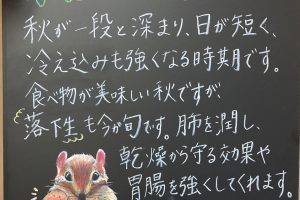 秋が一段と深まり、日が短く、
冷え込みも強くなる時期です。
食べ物が美味しい秋ですが、
落下生も今が旬です。肺を潤し、
乾燥から守る効果や
胃腸を強くしてくれます。